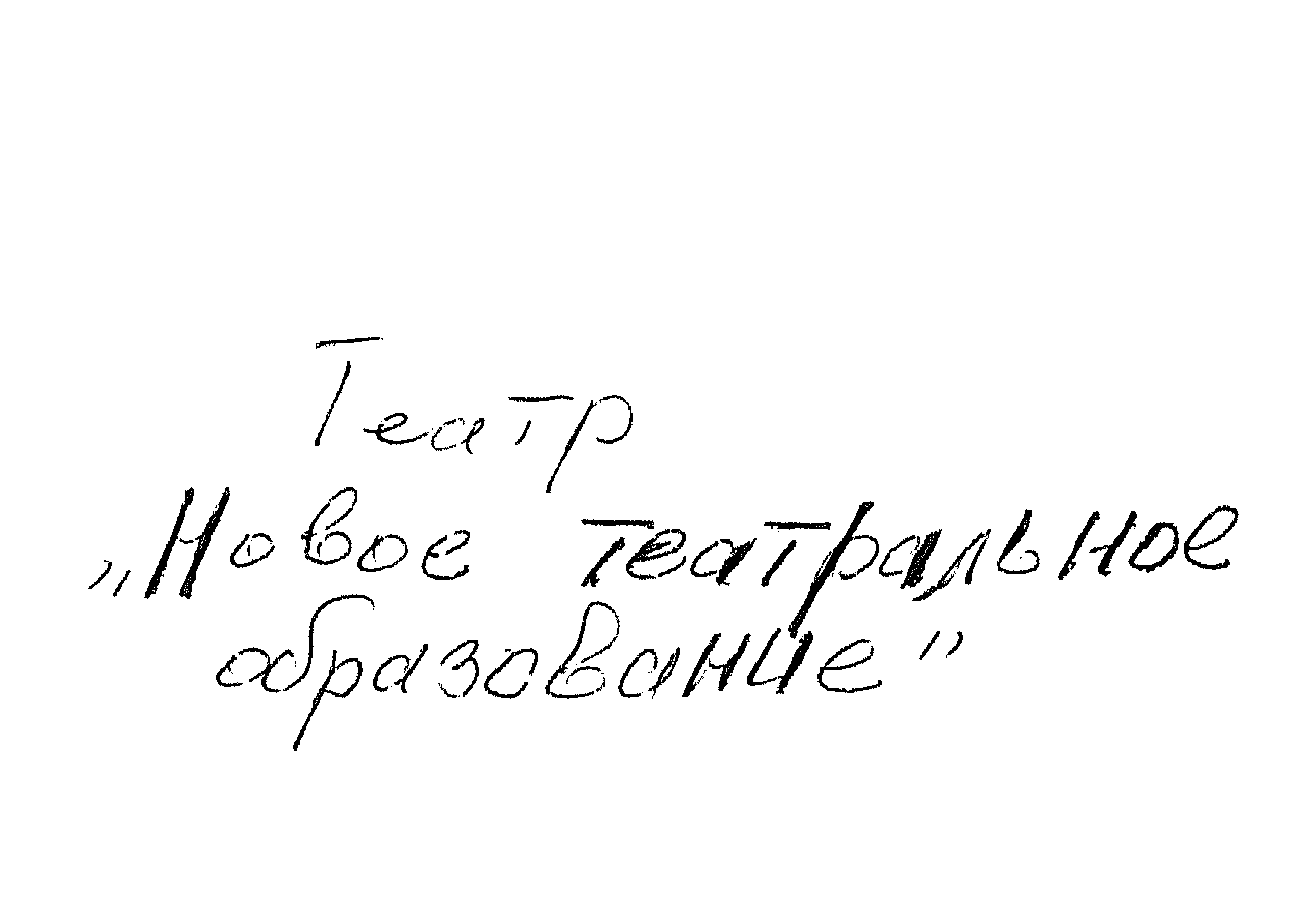 Театр
„Новое театральное
образование”